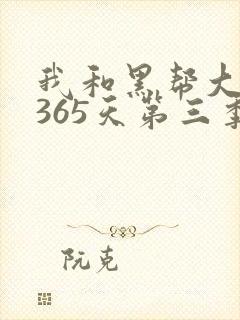 我和黑帮大
365天第三季
阮克